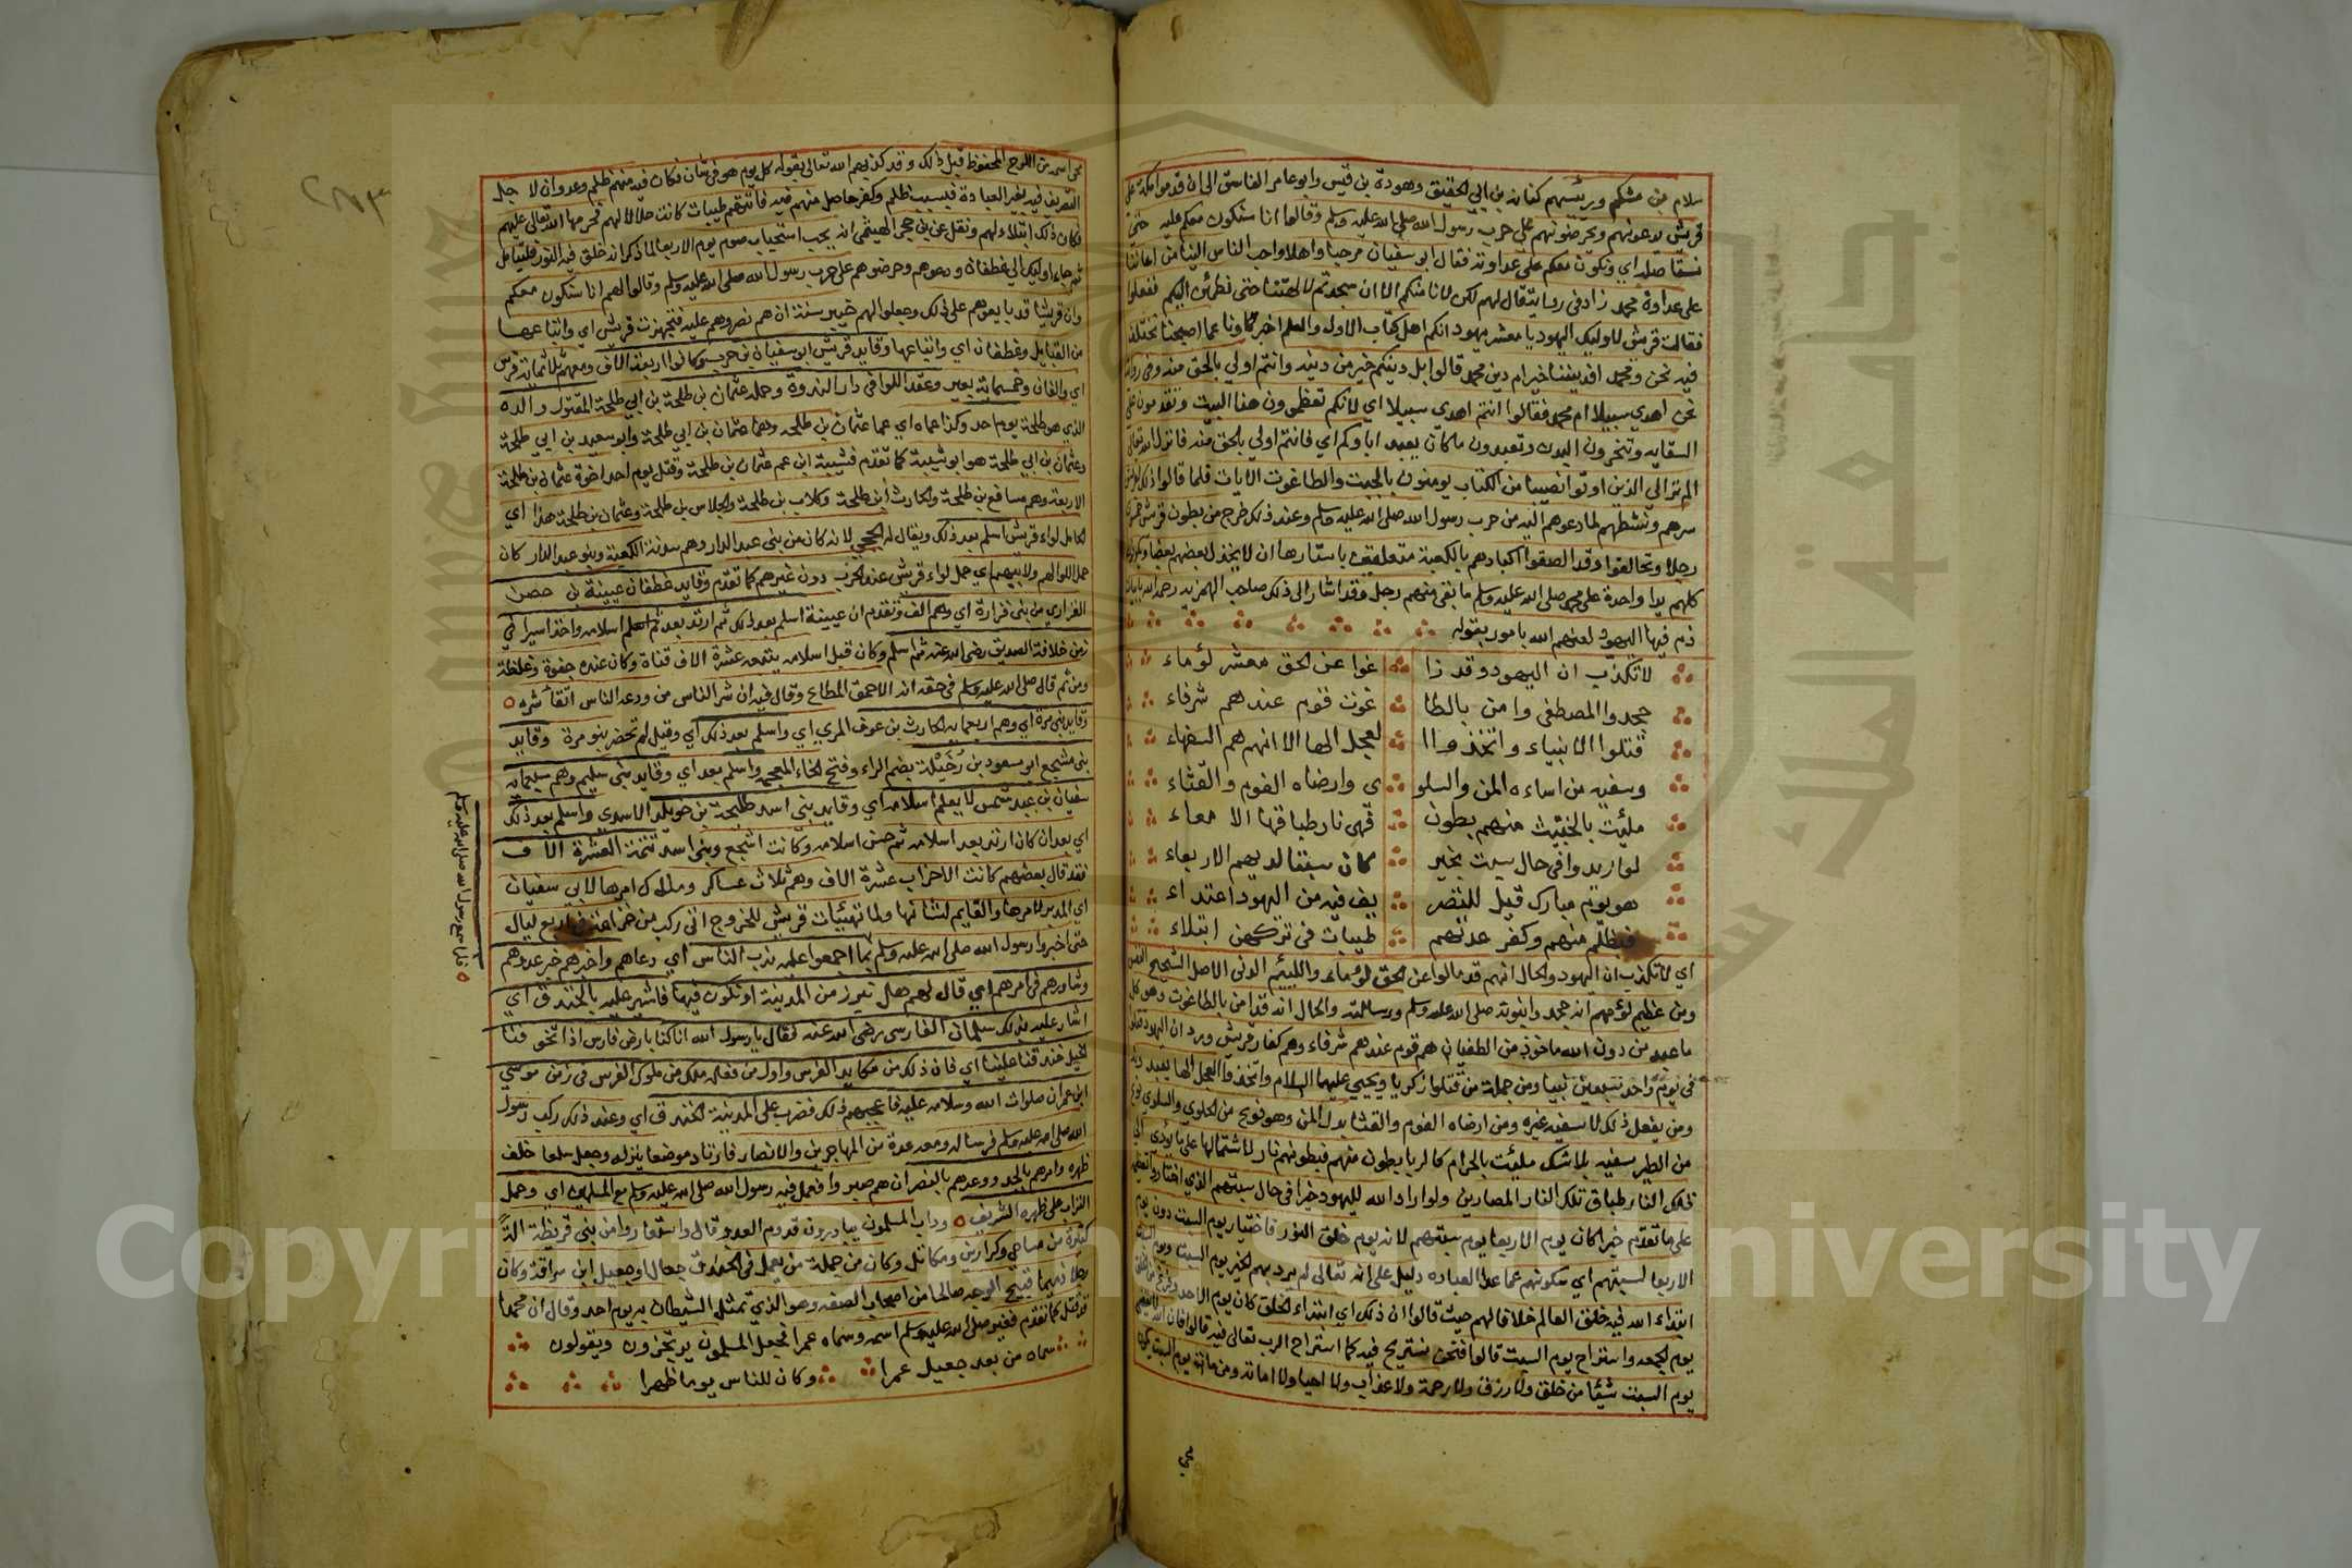 سلام بن مشكم ورئيسهم كنانه بن ابي الحقيق وهوذة بن قيس وابو عامر الفاسق الى ان قدموا مكة على
قريش يدعونهم ويحرضونهم على حرب رسول الله صلى الله عليه وسلم وقالوا انا سنكون معكم عليه حتى
نستاصله اي ونكون معكم على عداوته فقال ابو سفيان مرحبا واهلا واحب الناس الينا من اعاننا
على عداوة محمد زاد في رواية قال لهم لكن لا نامنكم الا ان سجدتم لالهتنا حتى نطمئن اليكم ففعلوا
فقالت قريش لاوليك اليهود يا معشر يهود انكم اهل كتاب الاول والعلم اخبرونا عما اصبحنا نختلف
فيه نحن ومحمد افديننا خير ام دين محمد قالوا بل دينكم خير من دينه وانتم اولي بالحق منه وفى رواية
نحن اهدي سبيلا ام محمد فقالوا انتم اهدي سبيلا اي لانكم تعظمون هذا البيت وتقدمون على
السقايه وتنحرون البدن وتعبدون ما كان يعبد اباوكم اي فانتم اولي بالحق منه فانزل الله تعالى
الم تر الي الذين اوتوا نصيبا من الكتاب يومنون بالجبت والطاغوت الايات فلما قالوا ذلك لقريش
سرهم ونشطهم لما دعوهم اليه من حرب رسول الله صلى الله عليه وسلم وعند ذلك خرج من بطون قريش خمسون
رجلا وتحالفوا وقد الصقوا اكبادهم بالكعبة متعلقين باستارها ان لا يخذل بعضهم بعضا ويكونون
كلهم يدا واحدة على محمد صلى الله عليه وسلم ما بقى منهم رجل وقد اشار الى ذلك صاحب الهمزيه رحمه الله بابيات
ذم فيها اليهود لعنهم الله بامور بقوله
لا تكذب ان اليهود وقد زا غوا عن الحق معشر لؤماء
جحدوا المصطفى وامن بالطا غوت قوم عندهم شرفاء
قتلوا الانبياء واتخذوا ا لعجل الها الا انهم هم السفهاء
وسفيه من اساءه المن والسلو ى وارضاه الفوم والقثاء
ملئت بالخبيث منهم بطون فهى نار طباقها الامعاء
لو اريدوا في حال سبت بخير كان سبتا لديهم الاربعاء
هو يوم مبارك قيل للتصر يف فيه من اليهود اعتداء
فبظلم منهم وكفر عدتهم طيبات في تركهن ابتلاء
اي لا تكذب ان اليهود والحال انهم قد مالوا عن الحق لؤماء واللييم الدنى الاصل الشحيح النفس
ومن عظيم لؤمهم انه جحدوا نبوته صلى الله عليه وسلم ورسالته والحال انه قد امن بالطاغوت وهو كل
ما عبد من دون الله ماخوذ من الطغيان هم قوم عندهم شرفاء وهم كفار قريش وورد ان اليهود قتلوا
في يوم واحد سبعين نبيا ومن جملة من قتلوا زكريا ويحيي عليهما السلام واتخذوا العجل الها يعبد
ومن يفعل ذلك لا سفيه غيره ومن ارضاه الفوم والقثا بدل المن وهو نوع من الحلوي والسلوي نوع
من الطير سفيه بلا شك ملئت بالحرام كالربا بطون منهم فبطونهم نار لاشتمالها على ما يؤدي الي
تلك النار طباق تلك النار المصارين ولو اراد الله لليهود خيرا في حال سبتهم الذي اختاروا تعظيمه
على ما تقدم خير الكان يوم الاربعا يوم سبتهم لانه يوم خلق النور فاختيار يوم السبت دون يوم
الاربعا لسبتهم اي سكونهم عما عدا العباده دليل على انه تعالى لم يرد بهم الخير يوم السبت
ابتداء الله فيه خلق العالم خلافا لهم حيث قالوا ان ذلك اي ابتداء الخلق كان يوم الاحد
يوم الجمعه واستراح يوم السبت قالوا فنحن نستريح فيه كما استراح الرب تعالى فيه قالوا فان الله
يوم السبت شيئا من خلق ولا رزق ولا رحمة ولا عذاب ولا احيا ولا اماته ومن مات يوم السبت
محي
محي اسمه من اللوح المحفوظ قبل ذلك وقد كذبهم الله تعالى بقوله كل يوم هو في شان فكان فيه منهم ظلم وعدوان لا جل
التصريف فيه بغير العبادة فبسبب ظلم وكفر حاصل منهم فيه فاتتهم طيبات كانت حلالا لهم فحرمها الله تعالى عليهم
فكان ذلك ابتلاء لهم ونقل عن بن حجر الهيثمى انه يجب استحباب صوم يوم الاربعا لما ذكر انه خلق فيه النور فليتامل
ثم جاء اوليك الي غطفان ودعوهم وحرضوهم على حرب رسول الله صلى الله عليه وسلم وقالوا لهم انا سنكون معكم
وان قريشا قد بايعوهم على ذلك وجعلوا لهم خيبر سنة ان هم نصروهم عليه فتجهزت قريش اي واتباعها
من القبايل وغطفان اي واتباعها وقايد قريش ابو سفيان بن حرب وكانوا اربعة الاف ومعهم ثلاثماية فرس
اي والفان وخمسماية بعير وعقد اللوا في دار الندوة وحمله عثمان بن طلحة بن ابي طلحة المقتول والده
الذي هو طلحة يوم احد وكذا عماه اي عما عثمان بن طلحه وهما عثمان بن ابي طلحة وابو سعيد بن ابي طلحة
وعثمان بن ابي طلحة هو ابو شيبة كما تقدم فشيبة ابن عم عثمان بن طلحة وقتل يوم احد اخوة عثمان بن طلحة
الاربعة وهم مسافع بن طلحة والحارث بن طلحة وكلاب بن طلحة والجلاس بن طلحة وعثمان بن طلحة هذا اي
الحامل لواء قريش اسلم بعد ذلك ويقال له الحجبي لانه كان من بنى عبد الدار وهم سدنة الكعبة وبنو عبد الدار كان
حمل اللوا لهم ولا بيهم اي حمل لواء قريش عند الحرب دون غيرهم كما تقدم وقايد غطفان عيينة بن حصن
الفزاري من بنى فزارة اي وهم الف وتقدم ان عيينة اسلم بعد ذلك ثم ارتد بعد اسلامه واخذ اسيرا في
زمن خلافة الصديق رضى الله عنه ثم اسلم وكان قبل اسلامه يتبعه عشرة الاف قناة وكان عنده جفوة وغلظة
ومن ثم قال صلى الله عليه وسلم فى حقه انه الاحمق المطاع وقال فيه ان شر الناس من ودعه الناس اتقا شره
وقايد بني مرة اي وهم اربعماية الحارث بن عوف المري اي واسلم بعد ذلك اي وقيل لم تحضر بنو مرة وقايد
بنى مشجع ابو مسعود بن رخيلة بضم الراء وفتح الخاء المعجمه واسلم بعد اي وقايد بنى سليم وهم سبعمايه
سفيان بن عبد شمس لا يعلم اسلامه اي وقايد بنى اسد طليحة بن خويلد الاسدي واسلم بعد ذلك
اي بعد ان كان ارتد بعد اسلامه ثم حسن اسلامه وكانت اشجع وبنى اسد تتمة العشرة الاف
فقد قال بعضهم كانت الاحزاب عشرة الاف وهم ثلاث عساكر وملاك امرها لابي سفيان
اي المدبر لامرها والقايم لشانها ولما تهيئات قريش للخروج اتى ركب من خزاعة في اربع ليال
حتى اخبروا رسول الله صلى الله عليه وسلم بما اجمعوا عليه ندب الناس اي دعاهم واخبرهم خبر عدوهم
وشاورهم في امرهم اي قال لهم هل نبرز من المدينة او نكون فيها فاشير عليه بالخندق اي
اشار عليه بذلك سلمان الفارسى رضى الله عنه فقال يا رسول الله انا كنا بارض فارس اذا تخوفنا
الخيل خندقنا علينا اي فان ذلك من مكايد الفرس واول من فعله ملك من ملوك الفرس فى زمن موسي
ابن عمران صلوات الله وسلامه عليه فاعجبهم ذلك فضرب على المدينة الخندق اي وعند ذلك ركب رسول
الله صلى الله عليه وسلم فرسا له ومعه عدة من المهاجرين والانصار فارتاد موضعا ينزله وجعل سلعا خلف
ظهره وامرهم بالجد ووعدهم بالنصر ان هم صبروا فعمل فيه رسول الله صلى الله عليه وسلم مع المسلمين اي وحمل
التراب على ظهره الشريف وداب المسلمون يبادرون قدوم العدو قال واستعاروا من بنى قريظة الة
كثيرة من مساحي وكرازين ومكاتل وكان من جملة من يعمل فى الخندق جعال او جعيل ابن سراقة وكان
رجلا ذميما قبيح الوجه صالحا من اصحاب الصفه وهو الذي تمثل الشيطان به يوم احد وقال ان محمدا
قد قتل كما تقدم فغير صلى الله عليه وسلم اسمه وسماه عمرا فجعل المسلمون يرتجزون ويقولون
سماه من بعد جعيل عمرا وكان للناس يوما ظهرا
Copyright © King Saud University